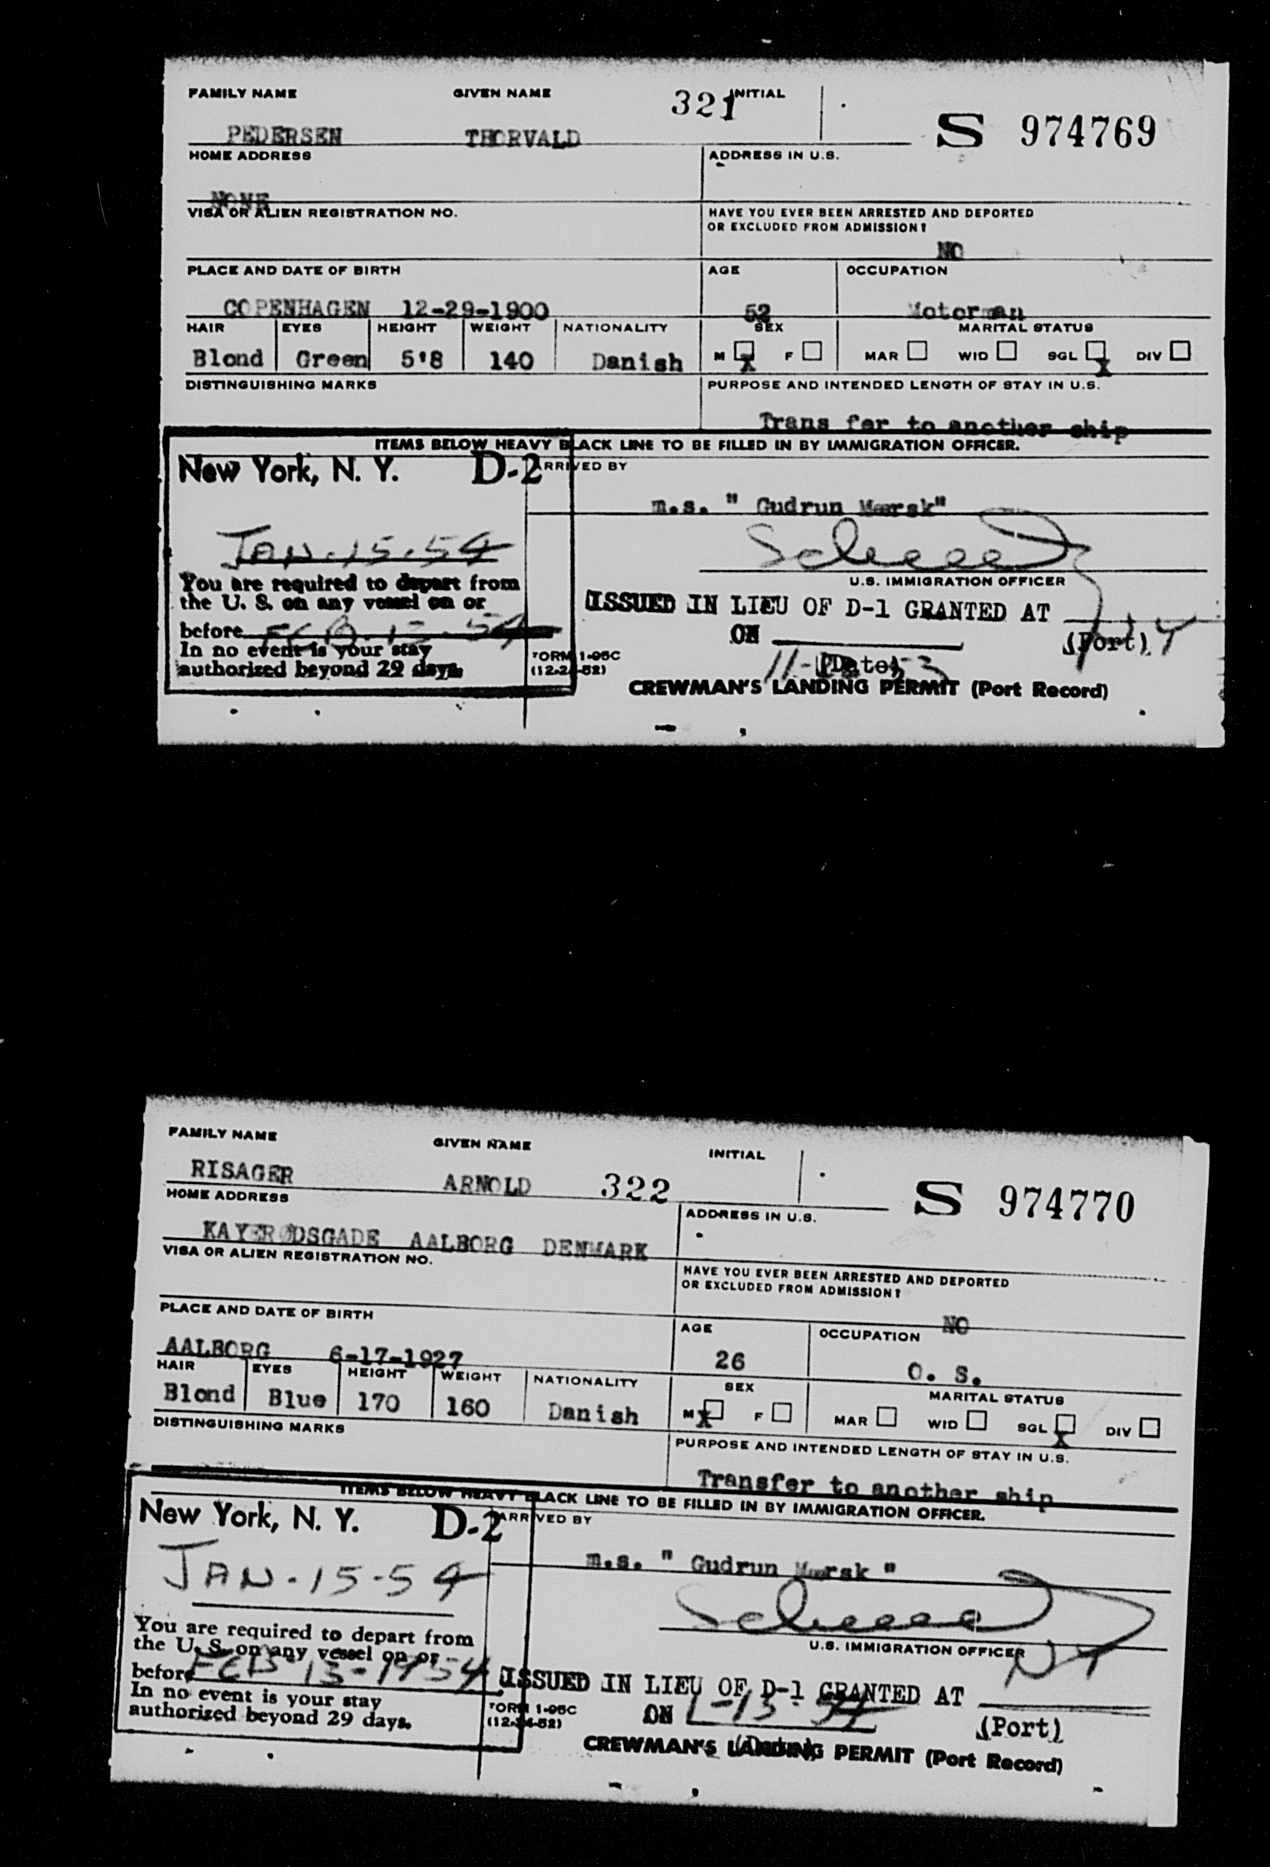 FAMILY NAME GIVEN NAME 321 INITIAL
PEDERSEN THORVALD S 974769
HOME ADDRESS ADDRESS IN U.S.
NONE
VISA OR ALIEN REGISTRATION NO. HAVE YOU EVER BEEN ARRESTED AND DEPORTED
OR EXCLUDED FROM ADMISSION?
NO
PLACE AND DATE OF BIRTH AGE OCCUPATION
COPENHAGEN 12-29-1900 52 Motorman
HAIR EYES HEIGHT WEIGHT NATIONALITY SEX MARITAL STATUS
Blond Green 5'8 140 Danish M X F MAR WID SGL X DIV
DISTINGUISHING MARKS PURPOSE AND INTENDED LENGTH OF STAY IN U.S.
Trans fer to another ship
ITEMS BELOW HEAVY BLACK LINE TO BE FILLED IN BY IMMIGRATION OFFICER.
New York, N. Y. D-2 ARRIVED BY
m.s. " Gudrun Mærsk"
JAN-15-54
U.S. IMMIGRATION OFFICER
You are required to depart from
the U. S. on any vessel on or
before FEB-13-54
In no event is your stay
authorized beyond 29 days.
ISSUED IN LIEU OF D-1 GRANTED AT NY
ON (Port)
(Date)
FORM I-95C
(12-24-52)
CREWMAN'S LANDING PERMIT (Port Record)
FAMILY NAME GIVEN NAME INITIAL
RISAGER ARNOLD 322 S 974770
HOME ADDRESS ADDRESS IN U.S.
KAYERØDSGADE AALBORG DENMARK
VISA OR ALIEN REGISTRATION NO. HAVE YOU EVER BEEN ARRESTED AND DEPORTED
OR EXCLUDED FROM ADMISSION?
NO
PLACE AND DATE OF BIRTH AGE OCCUPATION
AALBORG 6-17-1927 26 O. S.
HAIR EYES HEIGHT WEIGHT NATIONALITY SEX MARITAL STATUS
Blond Blue 170 160 Danish M X F MAR WID SGL X DIV
DISTINGUISHING MARKS PURPOSE AND INTENDED LENGTH OF STAY IN U.S.
Transfer to another ship
ITEMS BELOW HEAVY BLACK LINE TO BE FILLED IN BY IMMIGRATION OFFICER.
New York, N. Y. D-2 ARRIVED BY
m.s. " Gudrun Mærsk "
JAN-15-54
U.S. IMMIGRATION OFFICER
You are required to depart from
the U. S. on any vessel on or
before FEB 13-1954
In no event is your stay
authorized beyond 29 days.
ISSUED IN LIEU OF D-1 GRANTED AT NY
ON 1-15-54 (Port)
(Date)
FORM I-95C
(12-24-52)
CREWMAN'S LANDING PERMIT (Port Record)